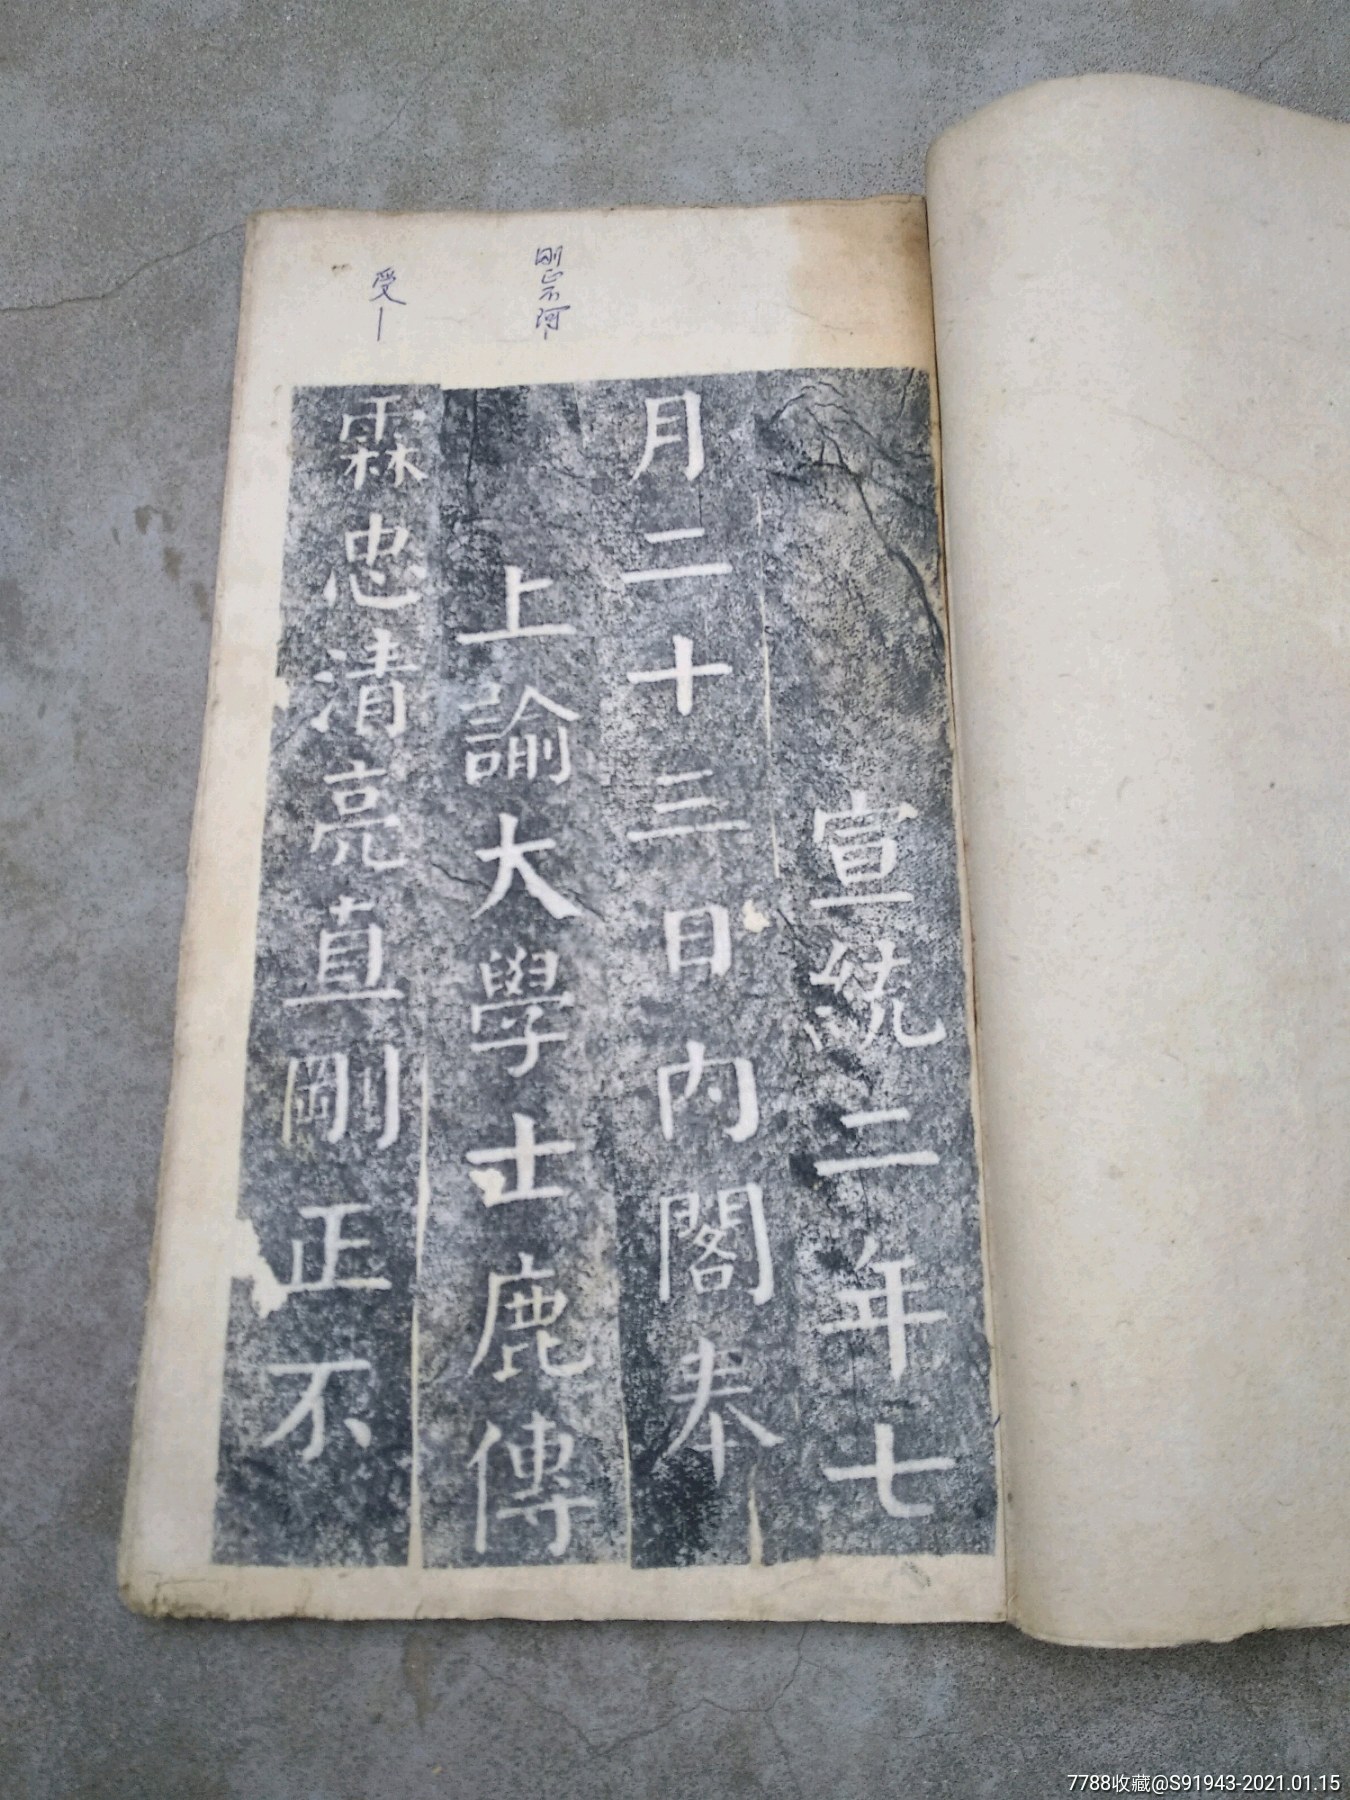 宣統二年七
月二十三日內閣奉
上諭大學士鹿傳
霖忠清亮直剛正不
剛正不阿
受
7788收藏@S91943-2021.01.15